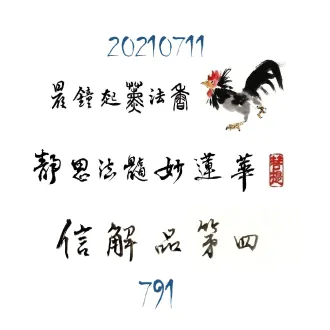 20210711
晨鐘起薰法香
靜思法髓妙蓮華
信解品第四
791